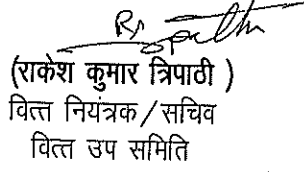 (राकेश कुमार त्रिपाठी )
वित्त नियंत्रक/सचिव
वित्त उप समिति